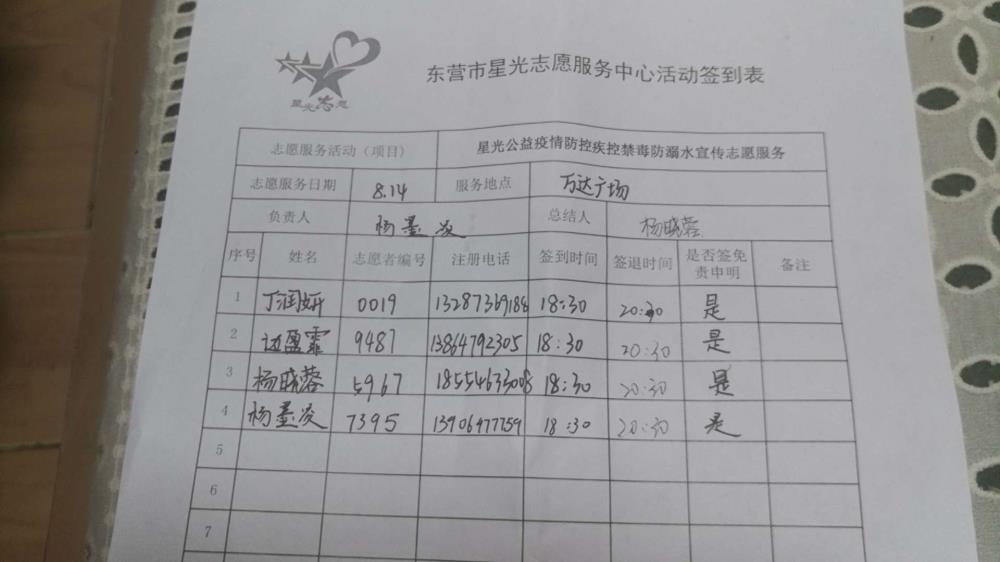 星光志愿
东营市星光志愿服务中心活动签到表
志愿服务活动（项目） 星光公益疫情防控疾控禁毒防溺水宣传志愿服务
志愿服务日期 8.14 服务地点 万达广场
负责人 杨墨凌 总结人 杨晓蓉
序号 姓名 志愿者编号 注册电话 签到时间 签退时间 是否签免责申明 备注
1 丁润妍 0019 13287369188 18:30 20:30 是
2 边盈霏 9487 13864792305 18:30 20:30 是
3 杨晓蓉 5967 18554633008 18:30 20:30 是
4 杨墨凌 7395 13906477759 18:30 20:30 是
5
6
7